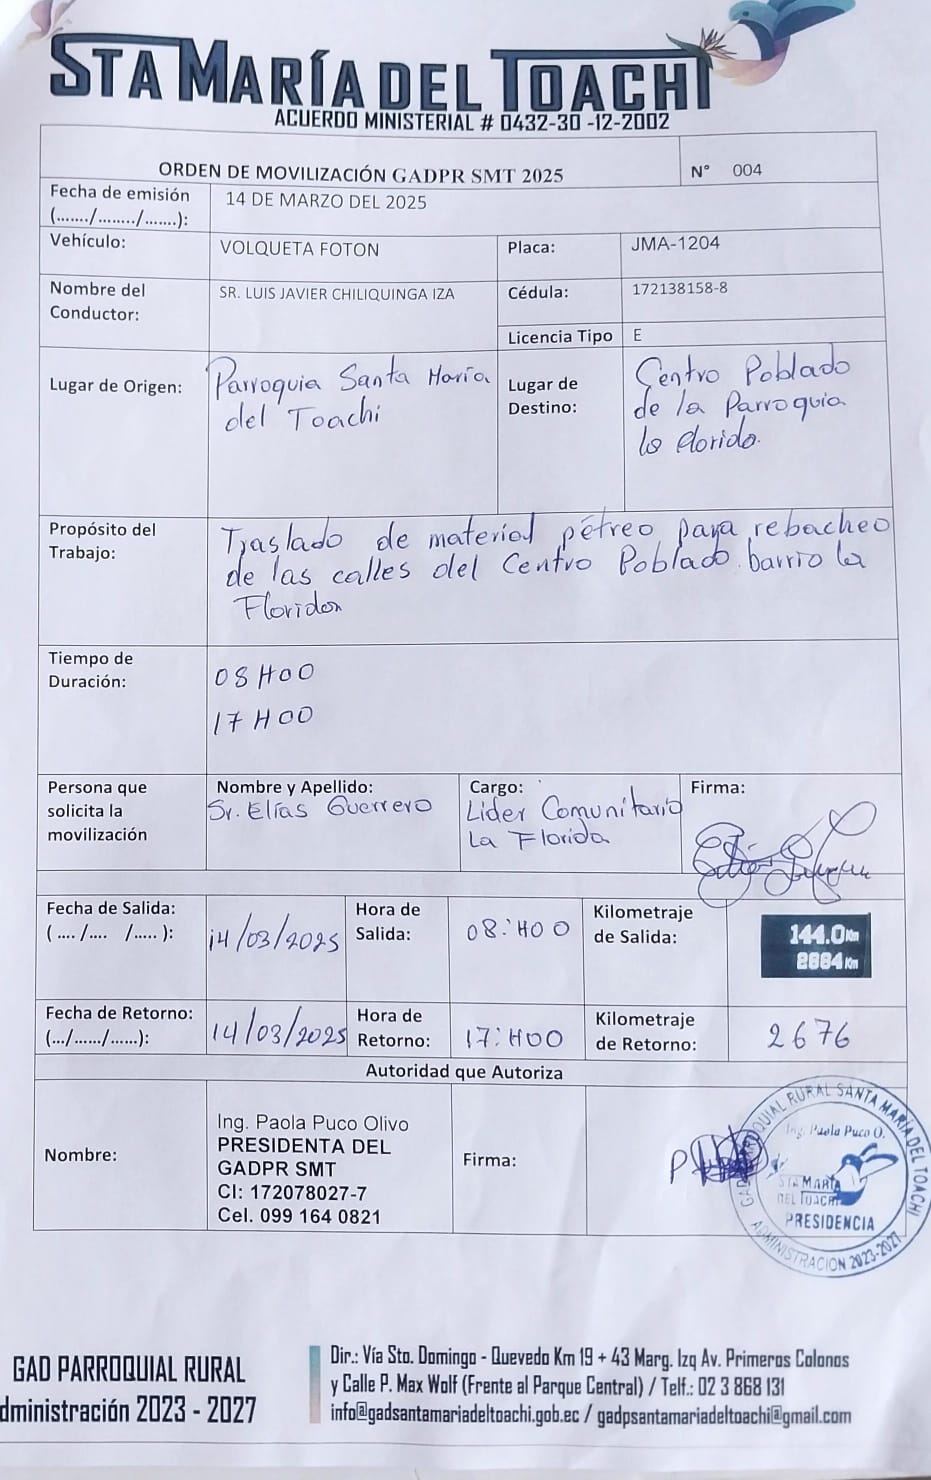 STA MARÍA DEL TOACHI
ACUERDO MINISTERIAL # 0432-30 -12-2002
ORDEN DE MOVILIZACIÓN GADPR SMT 2025
N° 004
Fecha de emisión
(......./......../.......):
14 DE MARZO DEL 2025
Vehículo:
VOLQUETA FOTON
Placa:
JMA-1204
Nombre del
Conductor:
SR. LUIS JAVIER CHILIQUINGA IZA
Cédula:
172138158-8
Licencia Tipo
E
Lugar de Origen:
Parroquia Santa María
del Toachi
Lugar de
Destino:
Centro Poblado
de la Parroquia
la florida.
Propósito del
Trabajo:
Traslado de material pétreo para rebacheo
de las calles del Centro Poblado barrio la
Florida
Tiempo de
Duración:
08H00
17H00
Persona que
solicita la
movilización
Nombre y Apellido:
Sr. Elías Guerrero
Cargo:
Lider Comunitario
La Florida
Firma:
Fecha de Salida:
( .... /.... /..... ):
14/03/2025
Hora de
Salida:
08:H00
Kilometraje
de Salida:
144.0Km
2684Km
Fecha de Retorno:
(.../....../......):
14/03/2025
Hora de
Retorno:
17:H00
Kilometraje
de Retorno:
2676
Autoridad que Autoriza
Nombre:
Ing. Paola Puco Olivo
PRESIDENTA DEL
GADPR SMT
CI: 172078027-7
Cel. 099 164 0821
Firma:
PARROQUIAL RURAL SANTA MARIA DEL TOACHI
Ing. Paola Puco O.
STA MARÍA
DEL TOACHI
PRESIDENCIA
ADMINISTRACION 2023-2027
GAD PARROQUIAL RURAL
dministración 2023 - 2027
Dir.: Vía Sto. Domingo - Quevedo Km 19 + 43 Marg. Izq Av. Primeros Colonos
y Calle P. Max Wolf (Frente al Parque Central) / Telf.: 02 3 868 131
info@gadsantamariadeltoachi.gob.ec / gadpsantamariadeltoachi@gmail.com